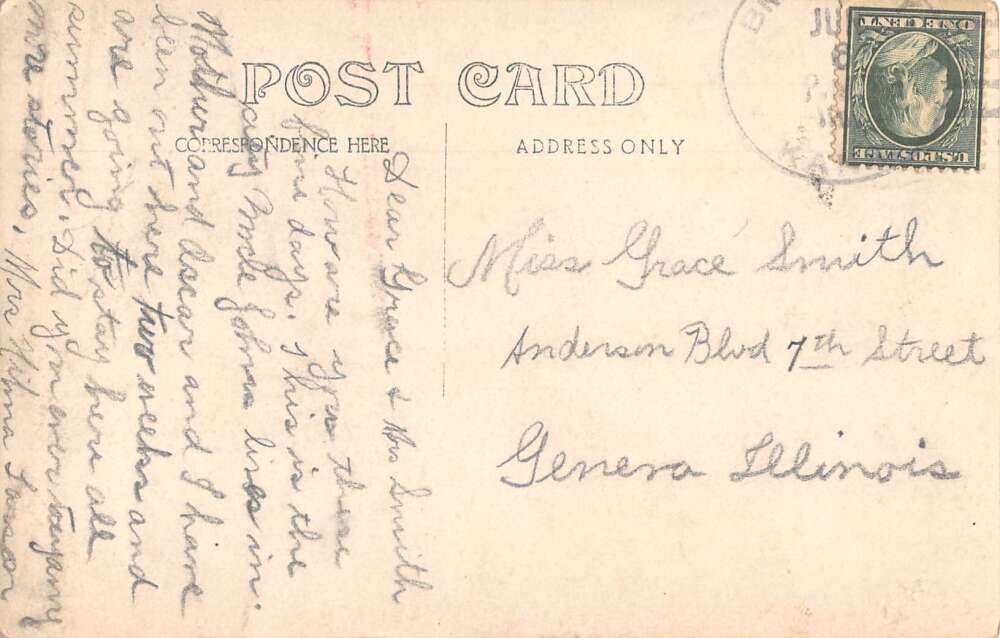 POST CARD
CORRESPONDENCE HERE
ADDRESS ONLY
ONE CENT
U.S. POSTAGE
Dear Grace & Mrs Smith
How are you these
fine days. This is the
city Uncle Johnas lives in.
Mother and Oscar and I have
been out here two weeks and
are going to stay here all
summer. Did you ever buy any
more stories. Mrs Wilma
Miss Grace Smith
Anderson Blvd 7th Street
Geneva Illinois